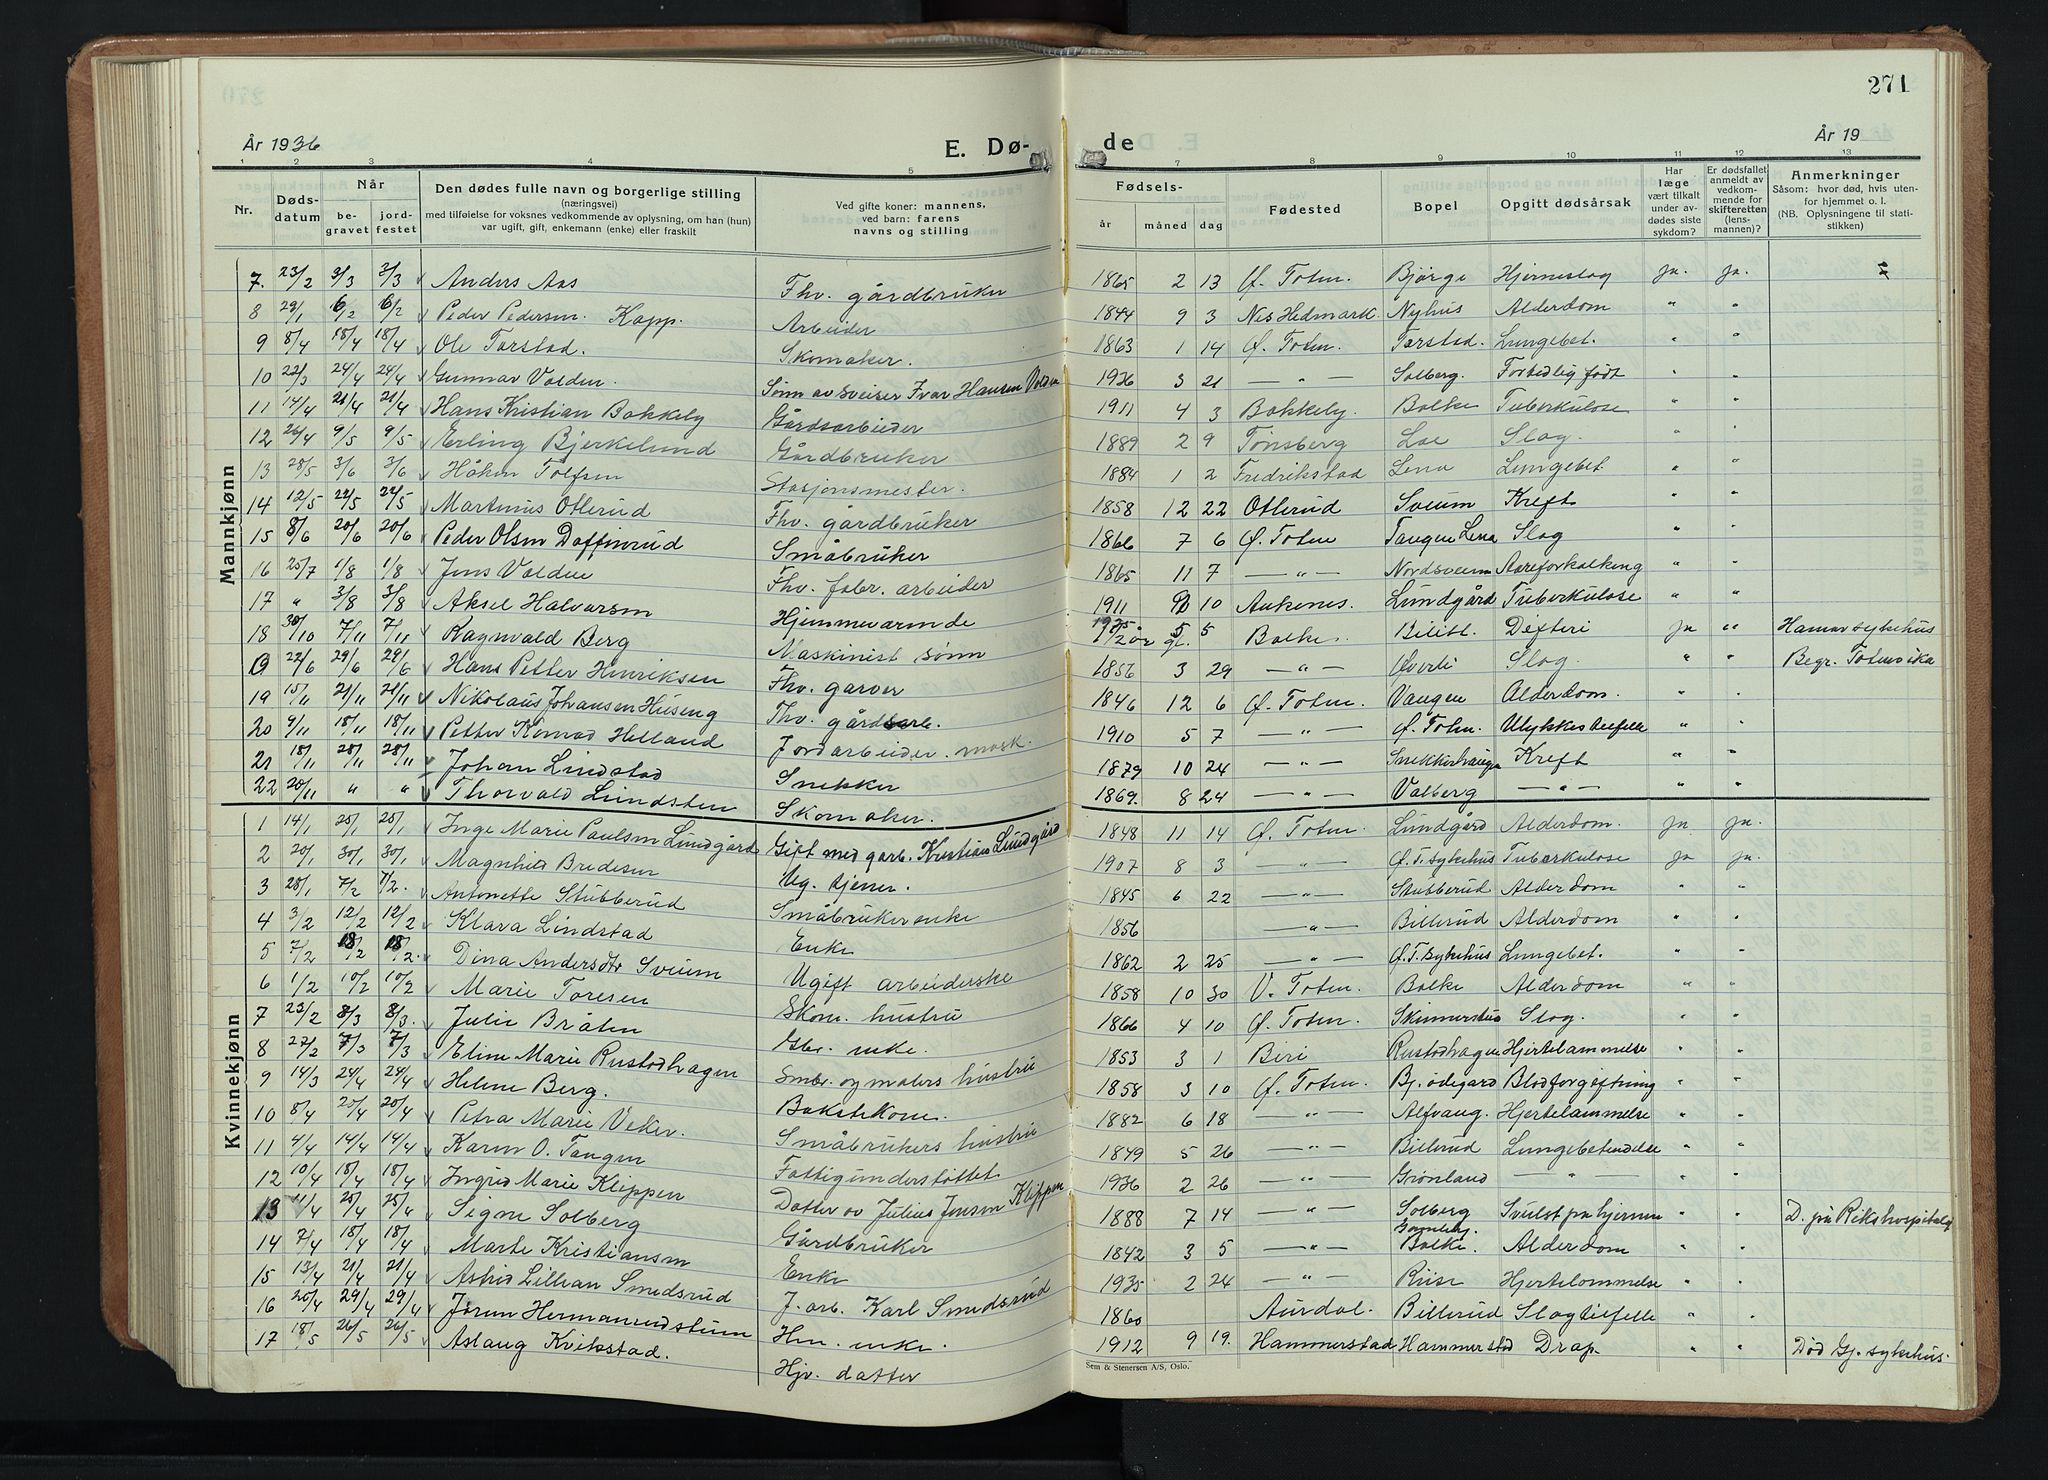 271
År 1936
E. Dø-
de
År 19
1 2 3 4 5 7 8 9 10 11 12 13
Nr.
Døds-
datum
Når
be-
gravet
jord-
festet
Den dødes fulle navn og borgerlige stilling
(næringsvei)
med tilføielse for voksnes vedkommende av oplysning, om han (hun)
var ugift, gift, enkemann (enke) eller fraskilt
Ved gifte koner: mannens,
ved barn: farens
navns og stilling
Fødsels-
år måned dag
Fødested
Bopel
Opgitt dødsårsak
Har
læge
vært tilkalt
under av-
dødes siste
sykdom?
Er dødsfallet
anmeldt av
vedkom-
mende for
skifteretten
(lens-
mannen)?
Anmerkninger
Såsom: hvor død, hvis uten-
for hjemmet o. l.
(NB. Oplysningene til stati-
stikken)
Mannkjønn
7. 23/2 3/3 3/3 Anders Aas Fhv. gårdbruker 1865 2 13 Ø. Toten. Bjørge Hjerneslag ja. ja.
8 29/1 6/2 6/2 Peder Pedersen Kapp. Arbeider 1844 9 3 Nes Hedmark. Nyhus Alderdom " "
9 8/4 18/4 18/4 Ole Tarstad. Skomaker. 1863 1 14 Ø. Toten. Tarstad. Lungebet. " "
10 22/3 24/4 24/4 Gunnar Volden. Sønn av sveiser Ivar Hansen Volden 1936 3 21 — " — Solberg. For tidlig født " "
11 14/4 21/4 21/4 Hans Kristian Bakkely Gårdsarbeider 1911 4 3 Bakkely. Balke Tuberkulose " "
12 26/4 9/5 9/5 Erling Bjerkelund Gårdbruker 1889 2 9 Tønsberg Loe Slag. " "
13 28/5 3/6 3/6 Håkon Tolfsen Stasjonsmester. 1884 1 2 Fredrikstad Lena Lungebet " "
14 12/5 22/5 22/5 Martinus Otterud Fhv. gårdbruker 1858 12 22 Otterud Sveum Kreft " "
15 8/6 20/6 20/6 Peder Olsen Daffinrud Småbruker 1866 7 6 Ø. Toten Tangen Lena Slag " "
16 25/7 1/8 1/8 Jens Volden Fhv. fabr. arbeider 1865 11 7 — " — Nordsveen Aareforkalking " "
17 " 3/8 3/8 Aksel Halvorsen Hjemmeværende 1911 10 Aukenes. Lundgård Tuberkulose " "
18 30/10 7/11 7/11 Ragnvald Berg Maskinist sønn 5 5 Balke. Bilitt. Difteri ja " Hamar sykehus
22/6 29/6 29/6 Hans Petter Henriksen Fhv. garver 1856 3 29 — " — Øverli Slag. " " Begr. Totenvika
19 15/11 21/11 21/11 Nikolaus Johansen Huseng Fhv. gårdsarb. 1846 12 6 Ø. Toten. Vangen Alderdom. " "
20 9/11 18/11 18/11 Petter Konrad Helland Jordarbeider. mask. 1910 5 7 — " — Ø. Toten. Ulykkestilfelle "
21 18/11 28/11 28/11 Johan Lindstad Snekker 1879 10 24 — " — Snekkerhaugen Kreft " "
22 20/11 " " Thorvald Lundsten Skomaker. 1869. 8 24 — " — Valberg — " — " "
Kvinnekjønn
1 14/1 25/1 25/1 Inge Marie Paulsen Lundgård Gift med garb. Kristian Lundgård 1848 11 14 Ø. Toten. Lundgård Alderdom. ja ja.
2 20/1 30/1 30/1 Magnhild Bredesen Ug. tjener. 1907 8 3 — " — Ø.T. sykehus Tuberkulose ja ja.
3 28/1 7/2 7/2. Antonette Stubberud Småbruker enke 1845 6 22 — " — Stubberud Alderdom " "
4 3/2 12/2 12/2 Klara Lindstad Enke 1856 — " — Billerud Alderdom " "
5 7/2 18/2 18/2. Dina Andersdtr Sveum Ugift arbeiderske 1862 2 25 — " — Ø.T. sykehus Lungebet. " "
6 1/2 10/2 10/2 Marie Toresen Skom. hustru 1858 10 30 V. Toten. Balke Alderdom " "
7 23/2 8/3 8/3. Julie Bråten Gbr. enke. 1866 4 10 Ø. Toten. Skinnerstua Slag. " "
8 27/2 7/3 7/3 Eline Marie Rustadhagen Smbr. og malers hustru 1853 3 1 Biri Rustadhagen Hjertelammelse " "
9 14/3 24/4 24/4 Helene Berg. Bakstekone. 1858 3 10 Ø. Toten. Bj. ødegård Blodforgiftning " "
10 8/4 20/4 20/4 Petra Marie Veker. Småbrukers hustru 1882 6 18 — " — Alfvang. Hjertelammelse " "
11 4/4 14/4 14/4 Karen O. Tangen Fattigunderstøttet 1849 5 26 — " — Billerud Lungebetendelse " "
12 10/4 18/4 18/4 Ingrid Marie Klippen Datter av Julius Jensen Klippen 1936 2 26 — " — Grønland — " — " "
13 11/4 25/4 25/4 Signe Solberg Gårdbruker 1888 7 14 — " — Solberg Svulst på hjernen " " D. på Rikshospitalet
14 7/4 18/4 18/4 Marte Kristiansen Enke 1842 3 5 — " — Gamleby. Balke. Alderdom " "
15 13/4 21/4 21/4 Astrid Lillian Smedsrud J. arb. Karl Smedsrud 1935 2 24 — " — Riise Hjertelammelse " "
16 20/4 29/4 29/4 Jørun Hermanrudstuen Hm. enke. 1860 Aurdal. Billerud Slagtilfelle " "
17 18/5 26/5 26/5 Aslaug Kvikstad. Hjv. datter 1912 9 19. Hammerstad Hammerstad Drap. " " Død Gj. sykehus.
Sem & Stenersen A/S, Oslo.